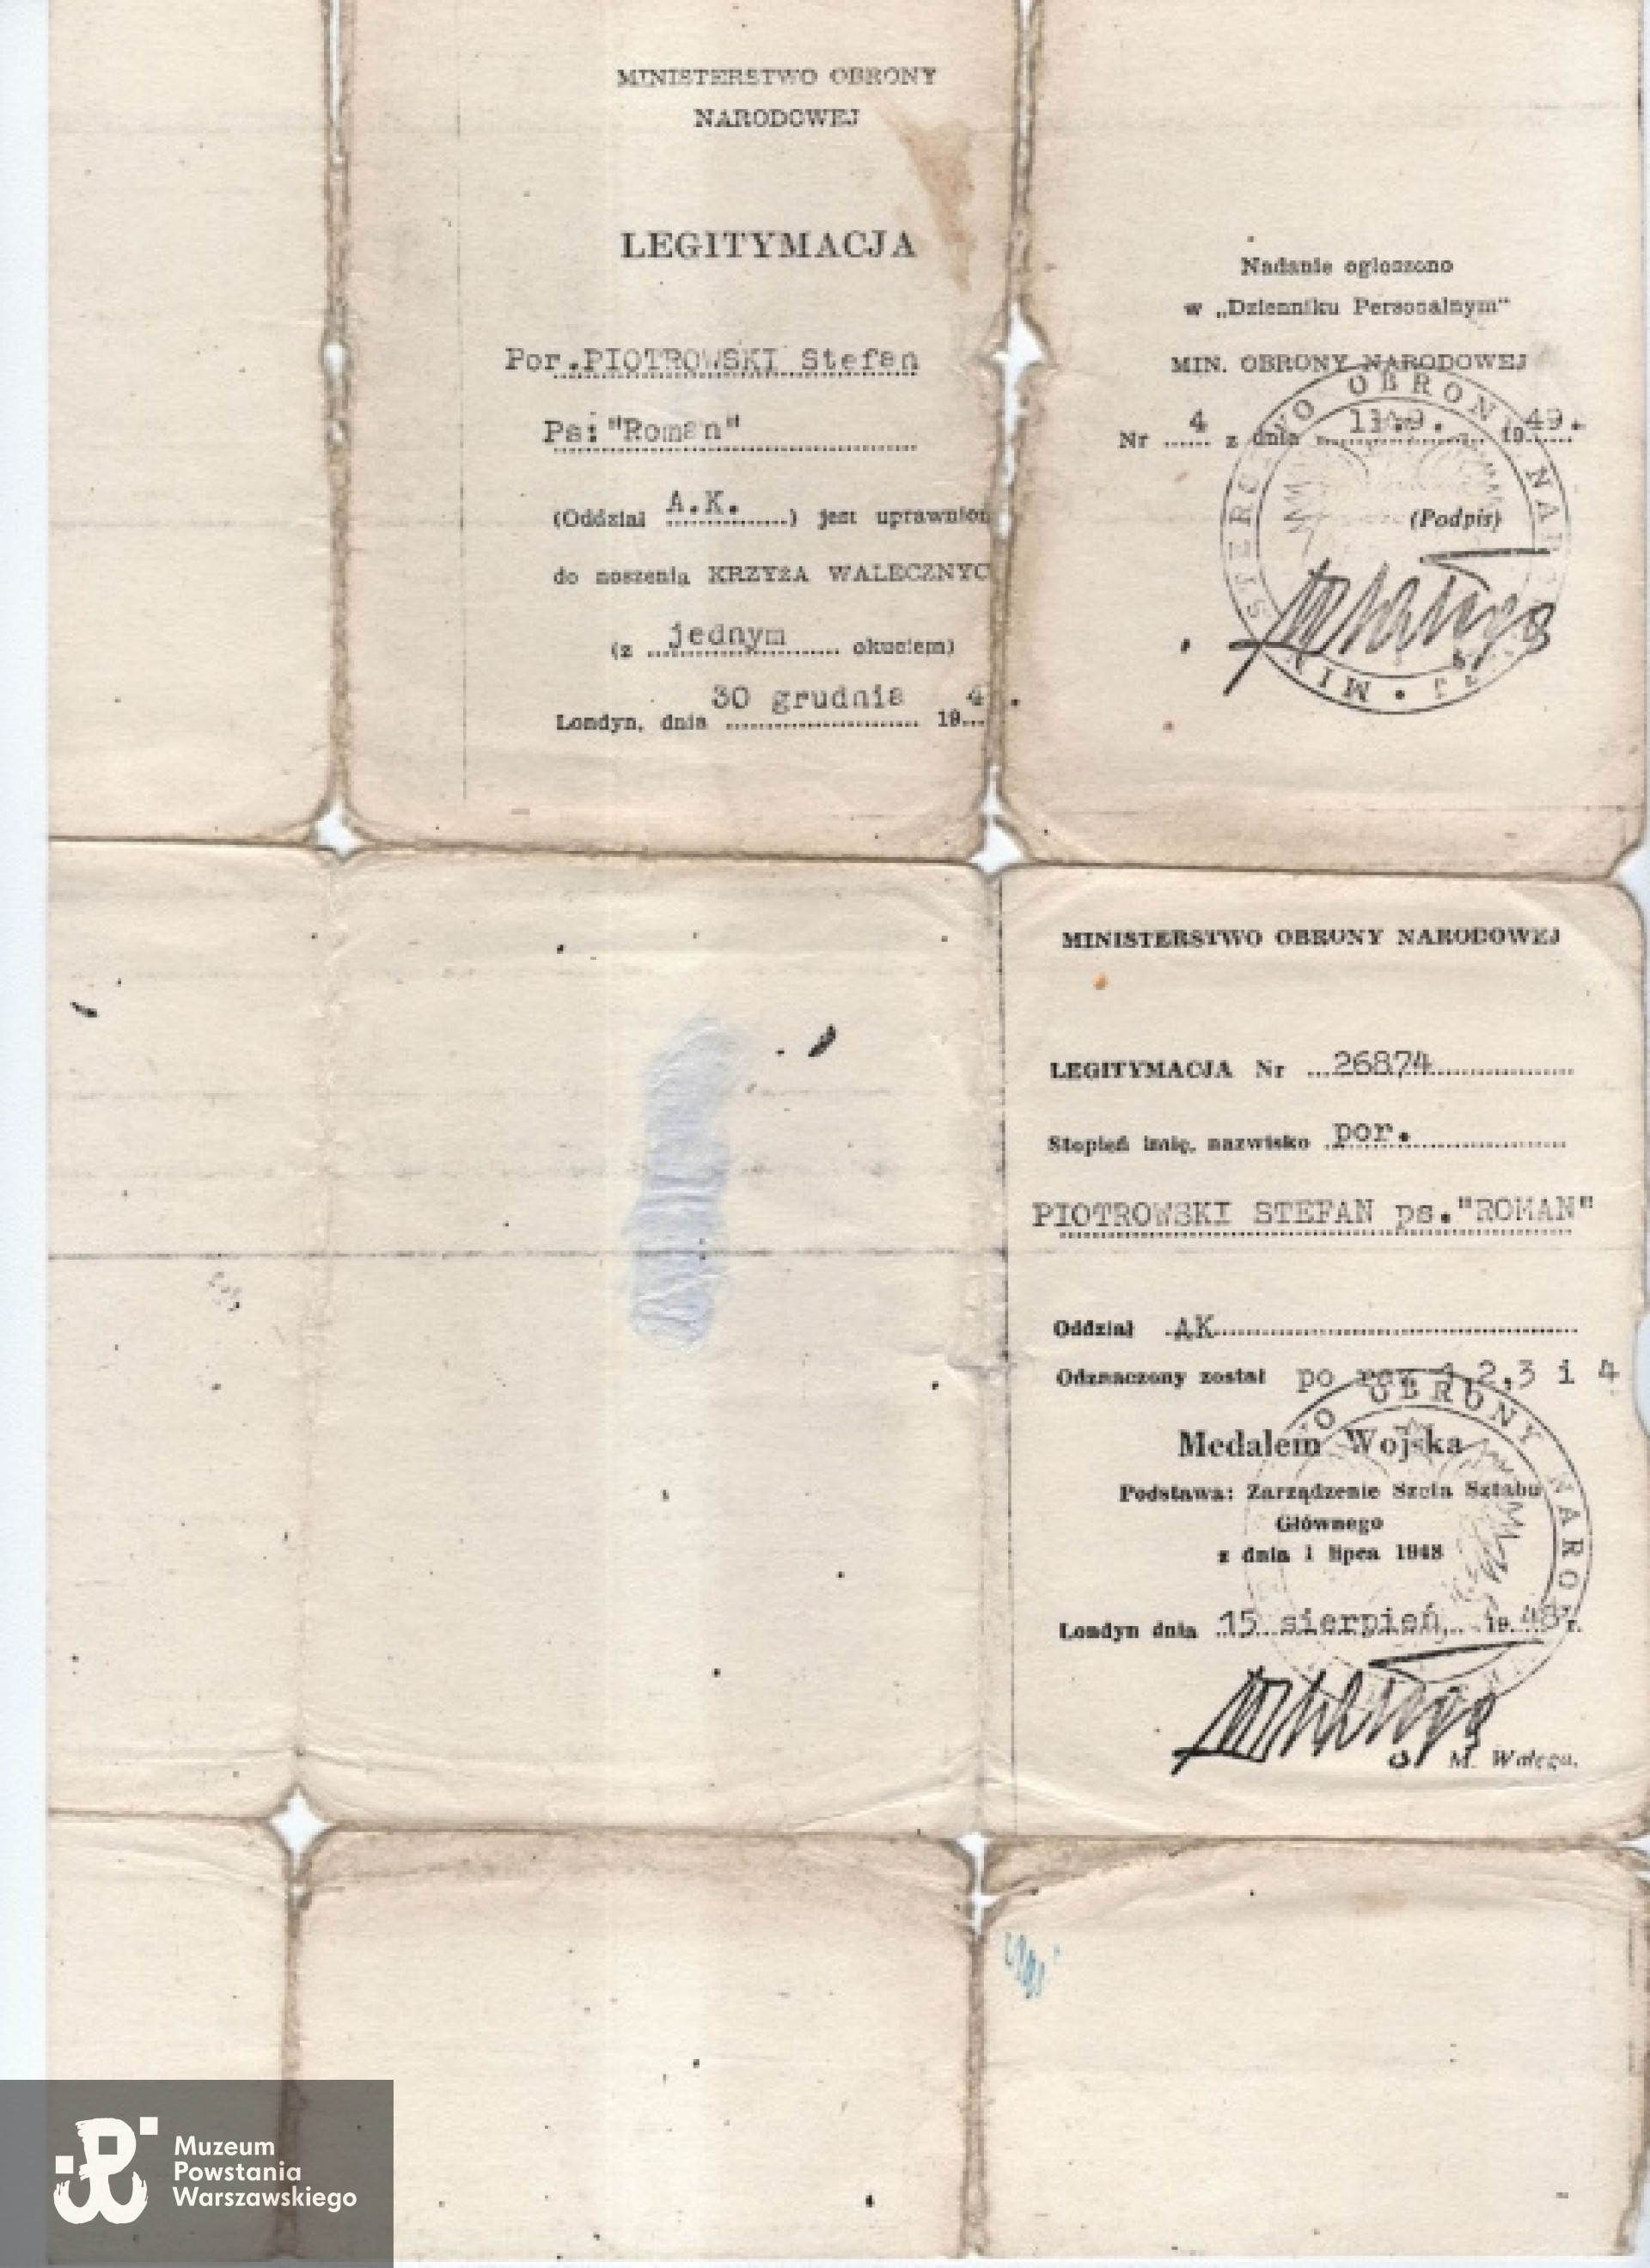 MINISTERSTWO OBRONY
NARODOWEJ
LEGITYMACJA
Por. PIOTROWSKI Stefan
Ps: "Roman"
(Oddział A.K. ) jest uprawnion
do noszenia KRZYŻA WALECZNYC
(z jednym okuciem)
Londyn, dnia 30 grudnia 194 .
Nadanie ogłoszono
w „Dzienniku Personalnym"
MIN. OBRONY NARODOWEJ
Nr 4 z dnia 1949.
(Podpis)
MINISTERSTWO OBRONY NARODOWEJ
LEGITYMACJA Nr 26874
Stopień imię, nazwisko por.
PIOTROWSKI STEFAN ps."ROMAN"
Oddział AK
Odznaczony został po raz 1,2,3 i 4
Medalem Wojska
Podstawa: Zarządzenie Szefa Sztabu
Głównego
z dnia 1 lipca 1948
Londyn dnia 15 sierpień, 1948 r.
M. Wałęga.
Muzeum
Powstania
Warszawskiego